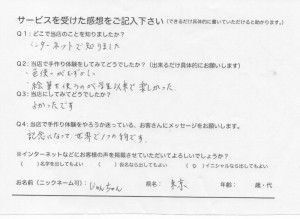 サービスを受けた感想をご記入下さい(できるだけ具体的に書いていただけると助かります。)
Q1:どこで当店のことを知りましたか?
インターネットで知りました
Q2:当店で手作り体験をしてみてどうでしたか?(出来るだけ具体的にお願いします)
絵筆を使うのが学生以来で楽しかった
Q3:当店にしてみてどうでしたか?
よかったです
Q4:当店で手作り体験をやろうか迷っている、お客さんにメッセージをお願いします。
記念になって、世界で1つの
※インターネットなどにお客様の声を掲載させていただいてよろしいでしょうか?
( )名字を出してもよい ( )仮名なら出してもよい (○)イニシャルなら出してもよい
お名前(ニックネーム可): じゅんちゃん 県名: 東京 年齢: 歳・代